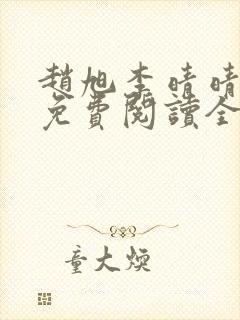 趙旭李晴晴
免費閱讀全
童大煥